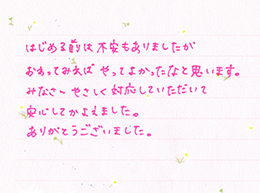 はじめる前は不安もありましたが
おわってみれば やってよかったなと思います。
みなさーやさしく対応していただいて
安心してかよえました。
ありがとうございました。